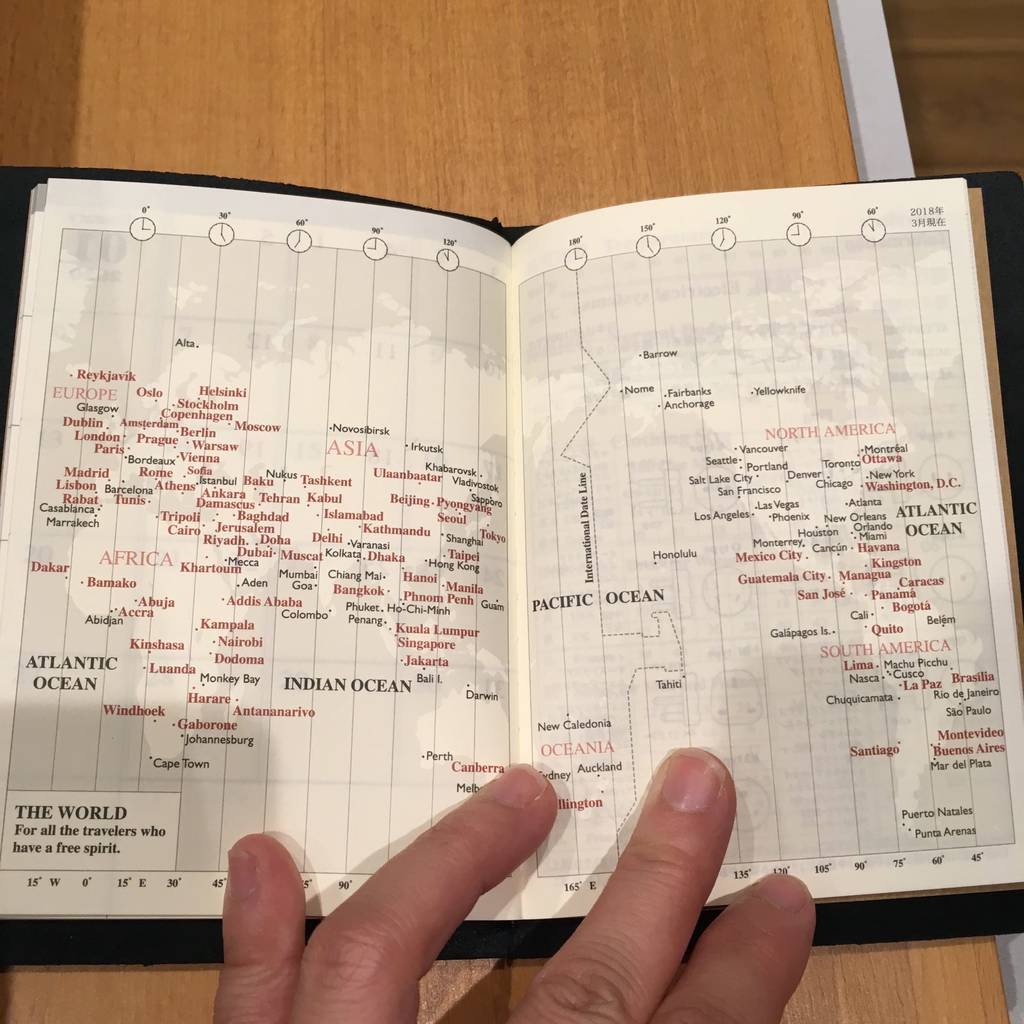 0°
30°
60°
90°
120°
Alta
Reykjavík
EUROPE
Oslo
Helsinki
Glasgow
Stockholm
Copenhagen
Dublin
Amsterdam
Berlin
Moscow
London
Prague
Warsaw
Novosibirsk
Paris
Bordeaux
Vienna
ASIA
Irkutsk
Madrid
Rome
Sofia
Istanbul
Nukus
Tashkent
Ulaanbaatar
Khabarovsk
Lisbon
Barcelona
Athens
Ankara
Baku
Vladivostok
Rabat
Tunis
Damascus
Tehran
Kabul
Beijing
Pyongyang
Sapporo
Casablanca
Marrakech
Tripoli
Baghdad
Islamabad
Seoul
Cairo
Jerusalem
Kathmandu
Shanghai
Tokyo
Riyadh
Doha
Delhi
Varanasi
AFRICA
Dubai
Muscat
Kolkata
Dhaka
Taipei
Dakar
Khartoum
Mecca
Hong Kong
Bamako
Aden
Mumbai
Goa
Chiang Mai
Hanoi
Manila
Bangkok
Phnom Penh
Abuja
Addis Ababa
Colombo
Phuket
Ho-Chi-Minh
Guam
Accra
Abidjan
Penang
Kampala
Kuala Lumpur
Kinshasa
Nairobi
Singapore
ATLANTIC
OCEAN
Luanda
Dodoma
Jakarta
Monkey Bay
INDIAN OCEAN
Bali I.
Harare
Darwin
Windhoek
Antananarivo
Gaborone
Johannesburg
Cape Town
Perth
Canberra
THE WORLD
For all the travelers who
have a free spirit.
15° W
0°
15° E
30°
90°
180°
150°
120°
90°
60°
2018年
3月現在
Barrow
Nome
Fairbanks
Anchorage
Yellowknife
NORTH AMERICA
Vancouver
Montréal
Seattle
Portland
Toronto
Ottawa
Salt Lake City
Denver
Chicago
New York
San Francisco
Washington, D.C.
Las Vegas
Atlanta
Los Angeles
Phoenix
New Orleans
ATLANTIC
OCEAN
Houston
Orlando
Miami
International Date Line
Honolulu
Monterrey
Cancún
Havana
Mexico City
Kingston
Guatemala City
Managua
Caracas
PACIFIC OCEAN
San José
Panamá
Bogotá
Cali
Belém
Galápagos Is.
Quito
SOUTH AMERICA
Lima
Machu Picchu
Nasca
Cusco
Tahiti
La Paz
Brasília
Chuquicamata
Rio de Janeiro
São Paulo
New Caledonia
OCEANIA
Montevideo
Santiago
Buenos Aires
Auckland
Mar del Plata
Puerto Natales
Punta Arenas
165° E
135°
120°
105°
90°
75°
60°
45°